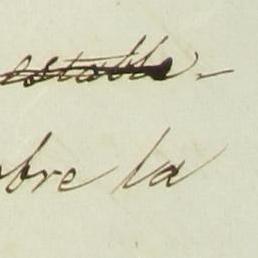 estable-
obre la